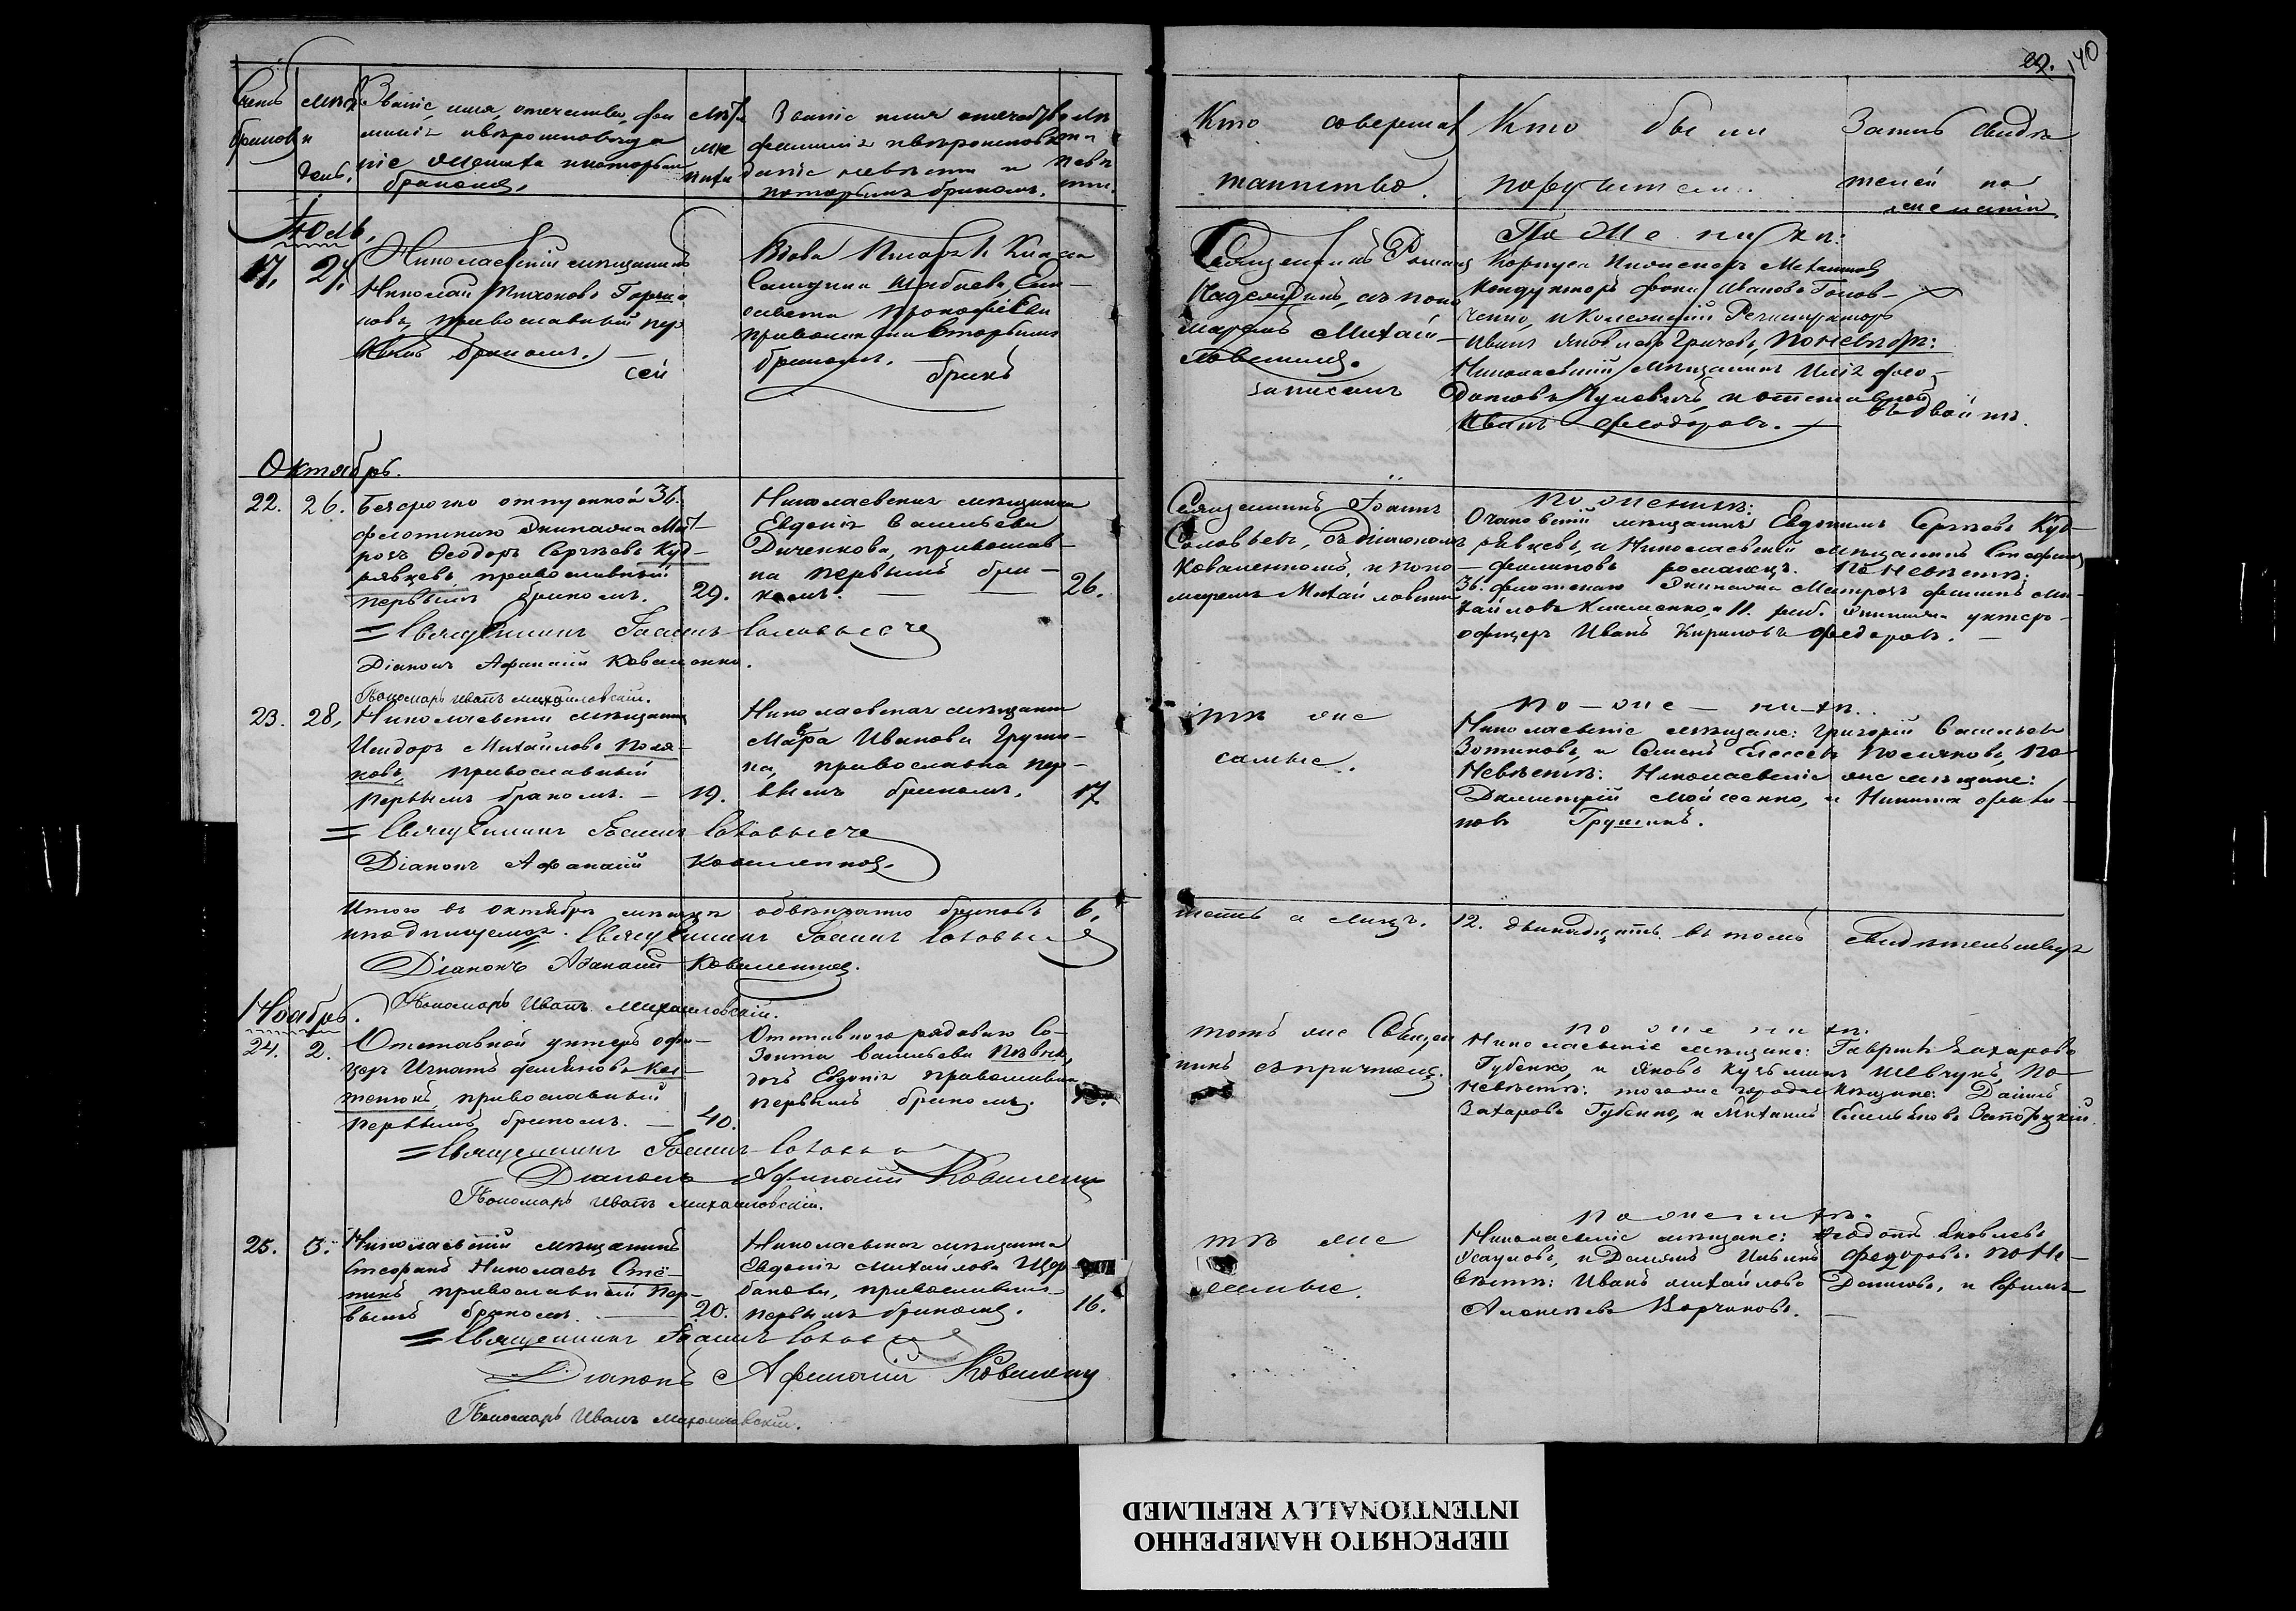 29. 140
Счетъ браковъ
Мѣсяцъ и день.
Званіе, имя, отечество, фамилія и вѣроисповѣданіе жениха и которымъ бракомъ.
Лѣта жениха
Званіе имя отечество фамилія и вѣроисповѣданіе невѣсты и которымъ бракомъ.
Лѣта невѣсты
Кто совершалъ таинство.
Кто были поручители.
Запись свидѣтелей по желанію
Іюль,
17. 27.
Николаевскій мѣщанинъ
Николай Тихоновъ
православный пер
вымъ бракомъ. —
сей
Вдова Писаря
Прокофіева
православная вторымъ
бракомъ.
бракъ
Священникъ Романъ
съ поно
маремъ Михай—
ловскимъ.
записанъ
По женихѣ:
Корпуса Инженеръ Механиковъ
Кондукторъ Ивановъ Голов—
ченко, и Коллежскій Регистраторъ
Иванъ Яковлевъ по невѣстѣ:
Николаевскій мѣщанинъ Илія Фео—
и отставной
Иванъ Феодоровъ. —
въ двойнѣ.
Октябрь.
22. 26. Безсрочно отпускной 36.
флотскаго Экипажа Мат—
росъ Ѳеодоръ Сергѣевъ Куд—
рявцевъ, православный
первымъ бракомъ. 29.
Николаевская мѣщанка
Евдокія Васильева
Диченкова, православ—
на первымъ бра—
комъ. — — 26.
Священникъ Іоаннъ
Соловьевъ, съ діакономъ
Коваленкомъ, и поно—
маремъ Михайловскимъ
По женихѣ:
Очаковскій мѣщанинъ Евдокимъ Сергѣевъ Куд—
рявцевъ, и Николаевскій мѣщанинъ Стефанъ
Филиповъ романецъ. по невѣстѣ:
36. флотскаго Экипажа Матросъ Филипъ Ми—
хайловъ Клименко, и 11. раб. Экипажа унтеръ—
офицеръ Иванъ Кириловъ Федоровъ. —
= Священникъ Іоаннъ Соловьевъ
Діаконъ Афанасій Коваленко.
Пономарь Иванъ Михайловскій.
23. 28. Николаевскій мѣщанинъ
Исидоръ Михайловъ Поля—
ковъ, православный
первымъ бракомъ. — 19.
Николаевская мѣщанка
Марѳа Иванова Груши—
на, православна пер—
вымъ бракомъ. 17.
тѣ же
самые.
По — же — ни — хѣ.
Николаевскіе мѣщане: Григорій Васильевъ
Зотиковъ, и Семенъ Елисеевъ Поляковъ, По
Невѣстѣ: Николаевскіе же мѣщане:
Димитрій Мойсеенко, и Никита
Грушинъ.
= Священникъ Іоаннъ Соловьевъ
Діаконъ Афанасій Коваленко.
Итого въ октябрѣ мѣсяцѣ обвѣнчано браковъ 6. шесть а лицъ. 12. двенадцать. въ томъ свидѣтельствуемъ
и подписуемся. Священникъ Іоаннъ Соловьевъ
Діаконъ Афанасій Коваленко.
Пономарь Иванъ Михайловскій.
Ноябрь.
24. 2. Отставной унтеръ офи—
церъ Игнатъ
православный
первымъ бракомъ. — 40.
Отставнаго рядоваго Со—
зонта Васильева
дочь Евдокія православна
первымъ бракомъ.
тотъ же Священ
никъ съ причтомъ.
По же ни хѣ.
Николаевскіе мѣщане: Гавріилъ Захаровъ
Губенко, и Яковъ Кузьминъ Шевчукъ, По
невѣстѣ: того же города мѣщане: Даніилъ
Захаровъ Губенко, и Михаилъ Запорожскій.
= Священникъ Іоаннъ Соловьевъ
Діаконъ Афанасій Коваленко
Пономарь Иванъ Михайловскій.
25. 3. Николаевскій мѣщанинъ
Стефанъ Николаевъ Стё—
пинъ православный пер—
вымъ бракомъ. — 20.
Николаевская мѣщанка
Евдокія Михайлова Щер—
бакова, православна
первымъ бракомъ. 16.
тѣ же
самые.
По женихѣ.
Николаевскіе мѣщане: Яковлевъ
и Даміанъ Федоровъ. По Не—
вѣстѣ: Иванъ Михайловъ и Ефимъ
Алексѣевъ Корчаковъ. —
= Священникъ Іоаннъ Соловьевъ
Діаконъ Афанасій Коваленко
Пономарь Иванъ Михайловскій.
ПЕРЕСНЯТО НАМЕРЕННО
INTENTIONALLY REFILMED